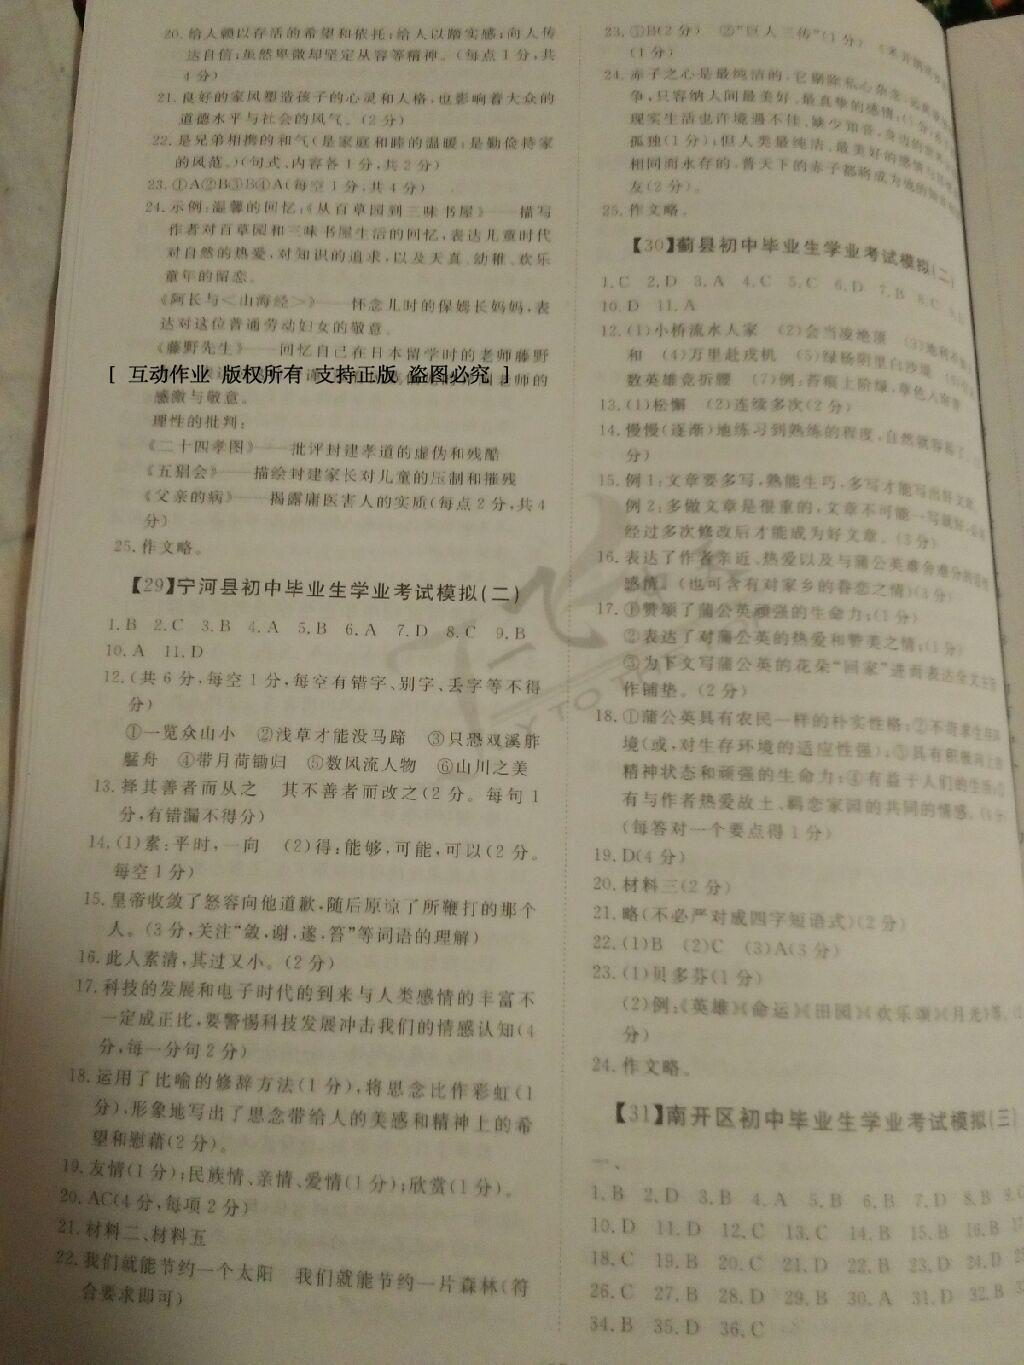 20.给人赖以存活的希望和依托;给人以踏实感;向人传
达自信;虽然卑微却坚定从容等精神。(每点1分,共
4分)
21.良好的家风塑造孩子的心灵和人格,也影响着大众的
道德水平与社会的风气。(2分)
22.是兄弟相携的和气(是家庭和睦的温暖;是勤俭持家
的风范。)(句式、内容各1分,共2分)
23.①A②B③B④A(每空1分,共4分)
24.示例:温馨的回忆:《从百草园到三味书屋》——描写
作者对百草园和三味书屋生活的回忆,表达儿童时代
对自然的热爱,对知识的追求,以及天真、幼稚、欢乐
童年的留恋。
《阿长与<山海经>》——怀念儿时的保姆长妈妈,表
达对这位普通劳动妇女的敬意。
《藤野先生》——回忆自己在日本留学时的老师藤野
[ 互动作业 版权所有 支持正版 盗图必究 ]
老师的
感激与敬意。
理性的批判:
《二十四孝图》——批评封建孝道的虚伪和残酷
《五猖会》——描绘封建家长对儿童的压制和摧残
《父亲的病》——揭露庸医害人的实质(每点2分,共4
分)
25.作文略。
【29】宁河县初中毕业生学业考试模拟(二)
1.B 2.C 3.B 4.A 5.B 6.A 7.D 8.C 9.B
10.A 11.D
12.(共6分,每空1分,每空有错字、别字、丢字等不得
分)
①一览众山小 ②浅草才能没马蹄 ③只恐双溪舴
艋舟 ④带月荷锄归 ⑤数风流人物 ⑥山川之美
13.择其善者而从之 其不善者而改之(2分。每句1
分,有错漏不得分)
14.(1)素:平时,一向 (2)得:能够,可能,可以(2分。
每空1分)
15.皇帝收敛了怒容向他道歉,随后原谅了所鞭打的那个
人。(3分,关注“敛,谢,遂,答”等词语的理解)
16.此人素清,其过又小。(2分)
17.科技的发展和电子时代的到来与人类感情的丰富不
一定成正比,要警惕科技发展冲击我们的情感认知(4
分,每一分句2分)
18.运用了比喻的修辞方法(1分),将思念比作彩虹(1
分),形象地写出了思念带给人的美感和精神上的希
望和慰藉(2分)。
19.友情(1分);民族情、亲情、爱情(1分);欣赏(1分)。
20.AC(4分,每项2分)
21.材料二、材料五
22.我们就能节约一个太阳 我们就能节约一片森林(符
合要求即可)
23.①B(2分) ②“巨人三传”(1分)
(1分)
24.赤子之心是最纯洁的,它剔除私心杂念,
争,只容纳人间最美好、最真挚的感情;(1分)
现实生活也许境遇不佳、缺少知音,
孤独(1分);但人类最纯洁、最美好的感情
相同而永存的,普天下的赤子都将成为他的
友(2分)。
25.作文略。
【30】蓟县初中毕业生学业考试模拟(二)
1.C 2.D 3.A 4.C 5.C 6.D 7.B 8.C
10.D 11.A
12.(1)小桥流水人家 (2)会当凌绝顶 (3)地利不如人
和 (4)万里赴戎机 (5)绿杨阴里白沙堤
数英雄竞折腰 (7)例:苔痕上阶绿,草色入帘青
13.(1)松懈 (2)连续多次(2分)
14.慢慢(逐渐)地练习到熟练的程度,自然就容易了。
分)
15.例1:文章要多写,熟能生巧,多写才能写出好文章。
例2:多做文章是很重的,文章不可能一写就好,
经过多次修改后才能成为好文章。(3分)
16.表达了作者亲近、热爱以及与蒲公英难舍难分的
感情。(也可含有对家乡的眷恋之情)(3分)
17.①赞颂了蒲公英顽强的生命力;(1分)
②表达了对蒲公英的热爱和赞美之情;(1分)
③为下文写蒲公英的花朵“回家”进而表达全文主旨
作铺垫。(2分)
18.①蒲公英具有农民一样的朴实性格;②不苛求生存环
境(或,对生存环境的适应性强);③具有积极向上的
精神状态和顽强的生命力;④有益于人们的生活;⑤
有与作者热爱故土、羁恋家园的共同的情感。
(每答对一个要点得1分)
19.D(4分)
20.材料三(2分)
21.略(不必严对成四字短语式)(2分)
22.(1)B (2)C (3)A(3分)
23.(1)贝多芬(1分)
(2)例:《英雄》《命运》《田园》《欢乐颂》《月光》等。
分)
24.作文略。
【31】南开区初中毕业生学业考试模拟(三)
一、
1.B 2.D 3.B 4.A 5.B 6.B 7.D 8.B
10.D 11.D 12.C 13.C 14.B 15.B 16.B
18.C 19.B 20.C 21.D 22.B 23.D 24.D
26.C 27.B 28.D 29.B 30.A 31.D 32.B
34.B 35.D 36.C